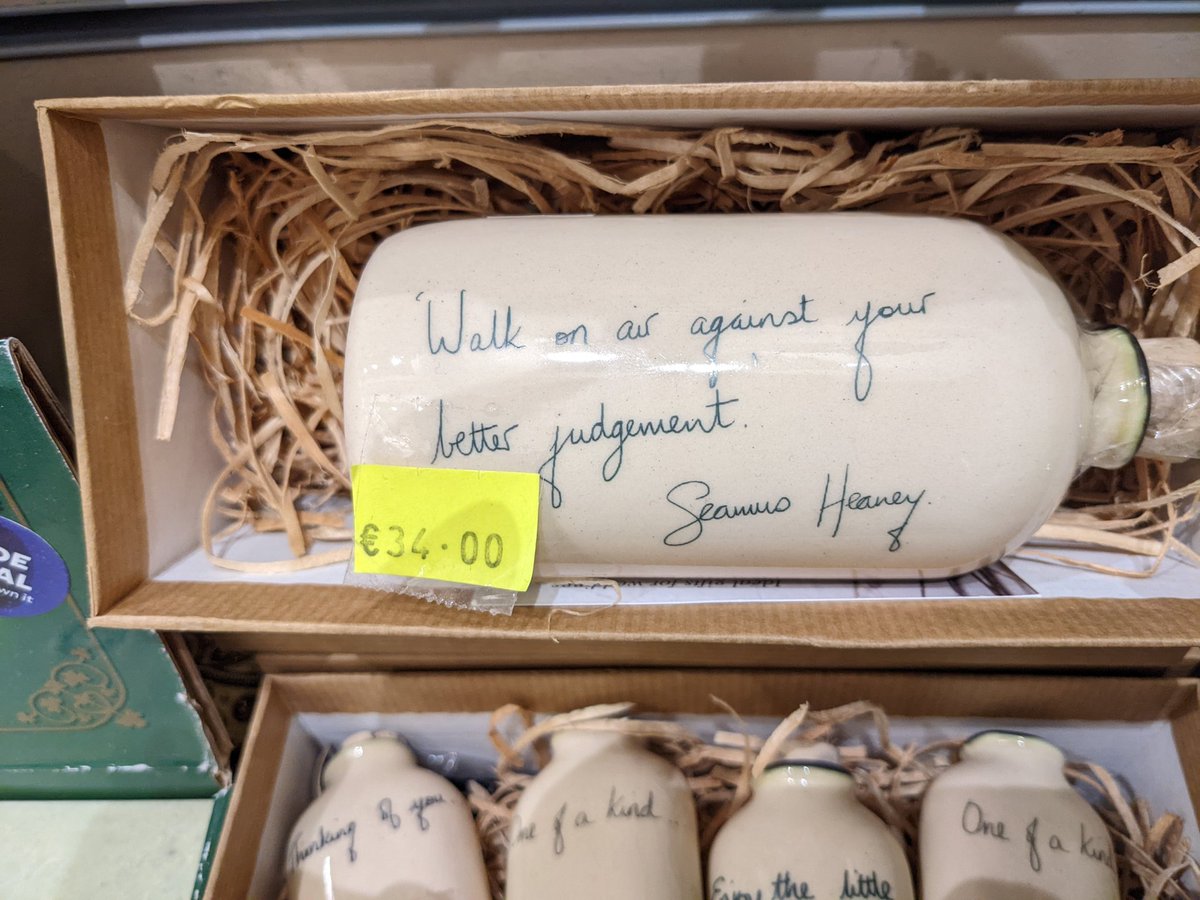 'Walk on air against your
better judgement.
Seamus Heaney.
€34.00
Thinking of you.
One of a kind
Enjoy the little
One of a kind